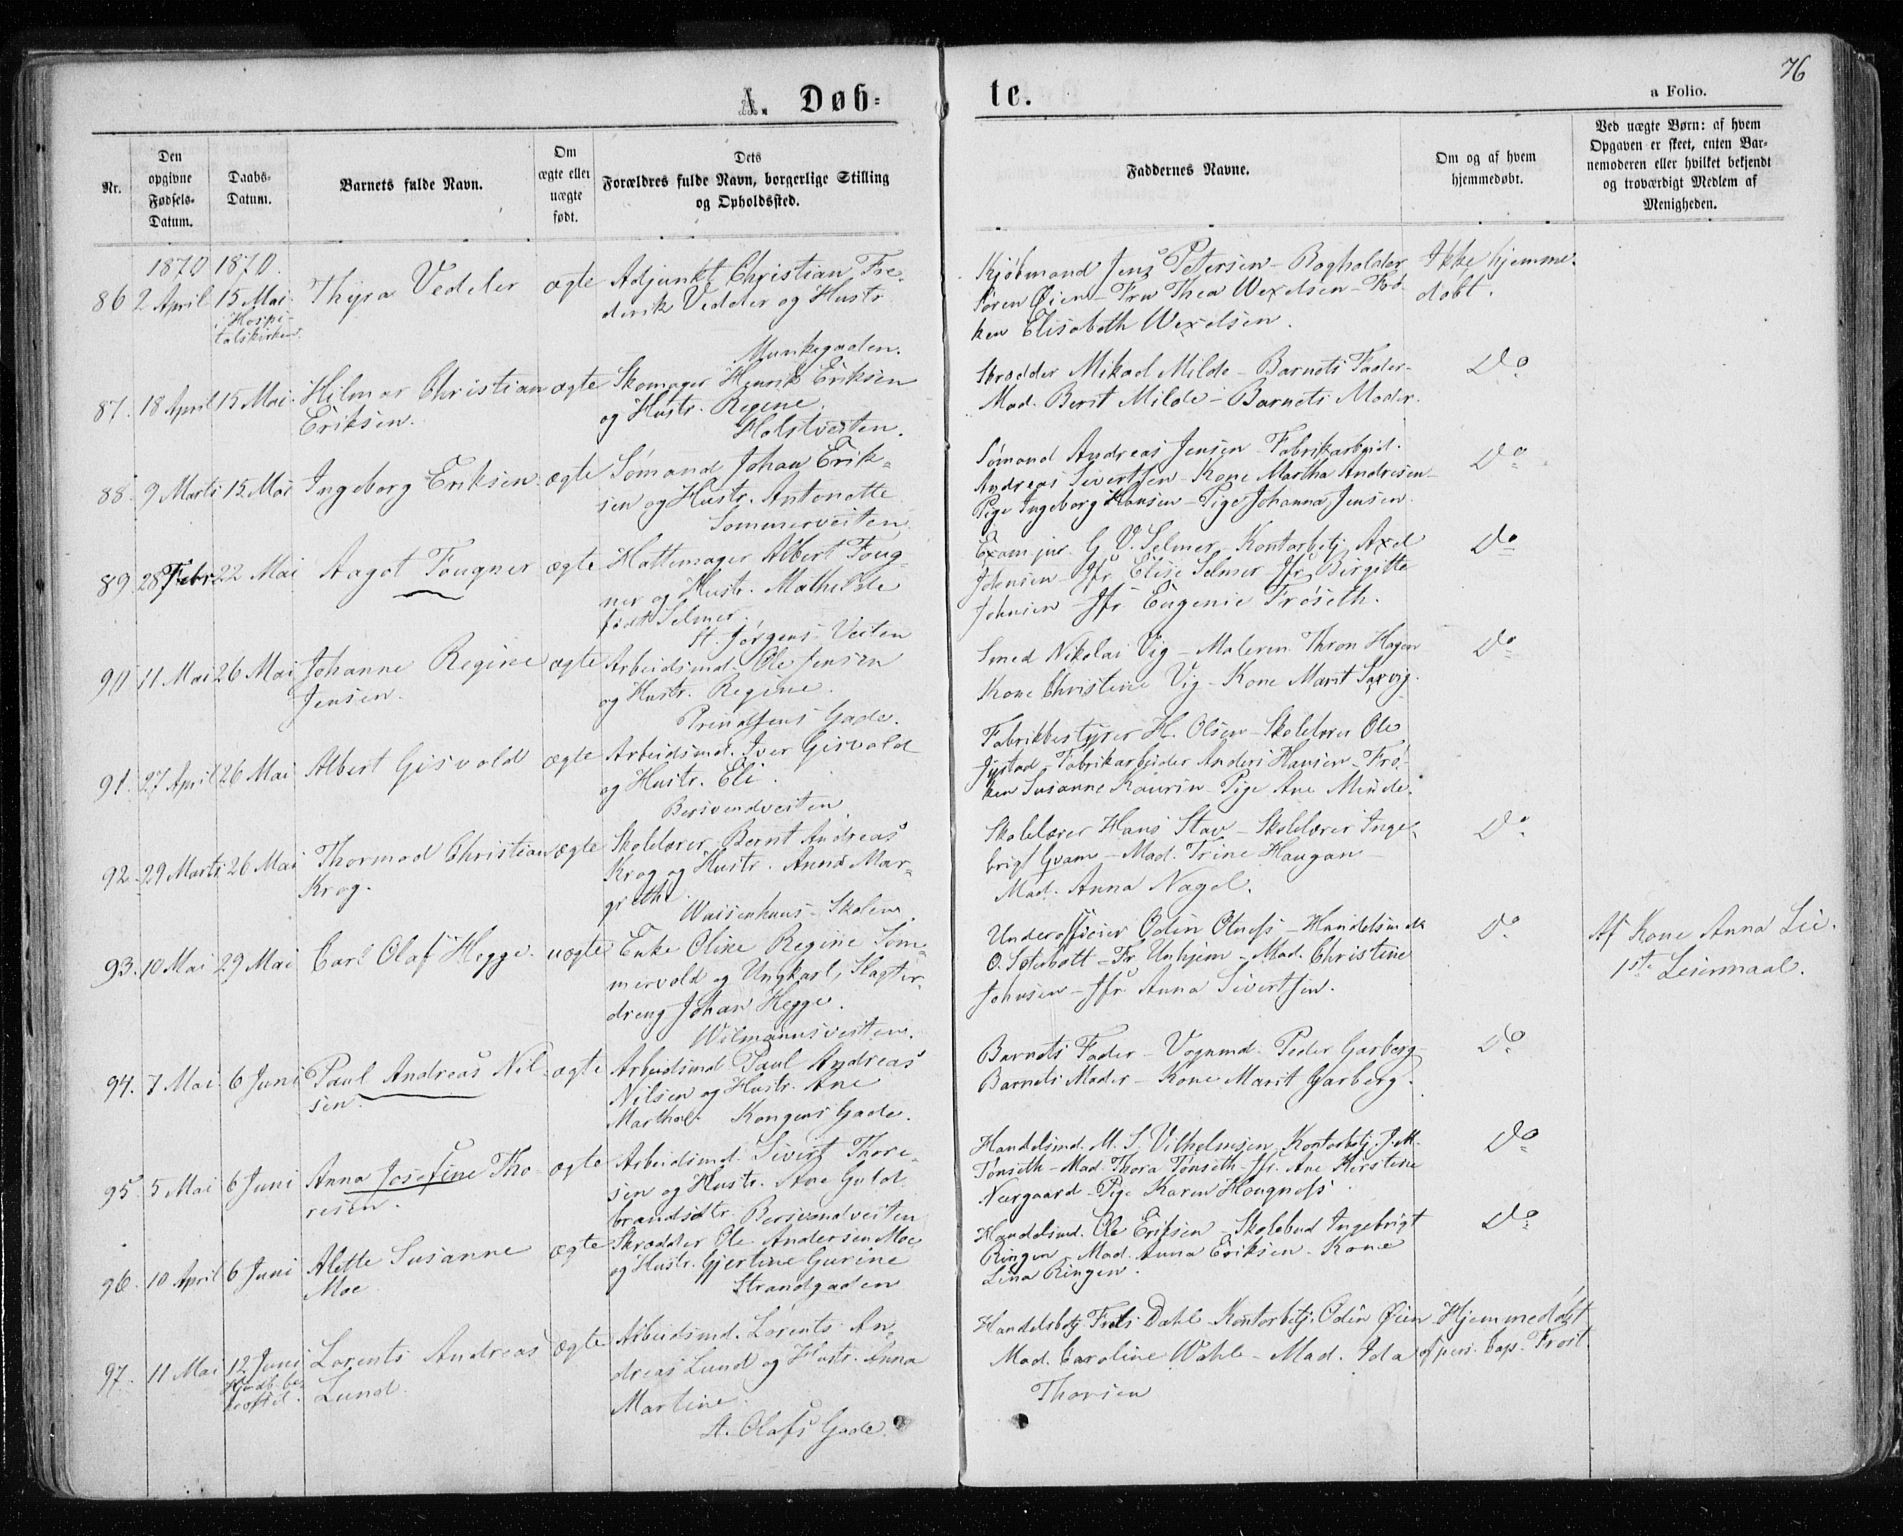 76
A. Døb-
te.
a Folio.
Nr.
Den
opgivne
Fødsels-
Datum.
Daabs-
Datum.
Barnets fulde Navn.
Om
ægte eller
uægte
født.
Dets
Forældres fulde Navn, borgerlige Stilling
og Opholdssted.
Faddernes Navne.
Om og af hvem
hjemmedøbt.
Ved uægte Børn: af hvem
Opgaven er skeet, enten Bar-
nemoderen eller hvilket bekjendt
og troværdigt Medlem af
Menigheden.
1870 1870.
86 2 April 15 Mai
i Hospi-
talskirken
Thyra Vedeler
ægte
Adjunkt Christian Fre-
derik Vedeler og Hustr
Munkegaden.
Kjøbmand Jens Petersen - Bogholder
Søren Øien - Fru Thea Wexelsen - Frø-
ken Elisabeth Wexelsen.
Ikke hjemme-
døbt.
87. 18 April 15 Mai
Hilmar Christian
Eriksen.
ægte
Skomager Henrik Eriksen
og Hustr. Regine.
Holstveiten.
Skrædder Mikael Milde - Barnets Fader-
Mad. Berit Milde - Barnets Moder.
Do
88. 9 Marts 15 Mai
Ingeborg Eriksen.
ægte
Sømand Johan Erik-
sen og Hustr. Antonette
Sommerveiten
Sømand Andreas Jensen - Fabrikarbeid.
Andreas Sivertsen - Kone Martha Andresen-
Pige Ingeborg Hansen - Pige Johanna Jensen.
Do
89 28 Febr 22 Mai
Aagot Fougner
ægte
Hattemager Albert Foug-
ner og Hustr. Mathilde
født Selmer.
St. Jørgens Veiten
Exam. jur. G. V. Selmer, Kontorbetj. Axel
Johnsen - Jfr. Elise Selmer - Jfr. Birgitte
Johnsen - Jfr Eugenie Frøseth.
Do
90 11 Mai 26 Mai
Johanne Regine
Jensen.
ægte
Arbeidsmd. Ole Jensen
og Hustr. Regine.
Prindsens Gade.
Smed Nikolai Vig - Maleren Thron Hagen
Kone Christine Vig - Kone Marit Saxvig.
Do
91. 27 April 26 Mai
Albert Gisvold
ægte
Arbeidsmd. Iver Gisvold
og Hustr. Eli.
Bersvendveiten
Fabrikbestyrer H. Olsen - Skolelærer Ole
Jystad - Fabrikarbeider Anders Hansen - Frø-
ken Susanne Kaurin - Pige Ane Minde.
92. 29 Marts 26 Mai
Thormod Christian
Krog.
ægte
Skolelærer Bernt Andreas
Krog og Hustr. Anna Mar-
grethe
Waisenhuus-Skolen.
Skolelærer Hans Stav - Skolelærer Inge-
brigt Qvam - Mad. Trine Haugan -
Mad. Anna Nagel.
Do
93. 10 Mai 29 Mai
Carl Olaf Hegge.
uægte
Enke Oline Regine Som-
mervold og Ungkarl, Slagter-
dreng Johan Hegge.
Wilmannsveiten.
Underofficier Odin Olufs - Handelsmd.
O. - Fr. Unhjem - Mad. Christine
Johnsen - Jfr. Anna Sivertsen.
Do
Af Kone Anna Lie.
1ste Leiermaal.
94. 7 Mai 6 Juni
Paul Andreas Nil-
sen.
ægte
Arbeidsmd Paul Andreas
Nilsen og Hustr. Ane
Martha. Kongens Gade.
Barnets Fader - Vognmd. Peder Garberg
Barnets Moder - Kone Marit Garberg.
Do
95. 5 Mai 6 Juni
Anna Josefine Tho-
resen.
ægte
Arbeidsmd. Sivert Thore-
sen og Hustr. Ane Guld-
brandsdtr. Bersvendveiten
Handelsmd. M. S. Vilhelmsen, Kontorbetj. J. M.
Tønseth - Mad. Thora Tønseth - Jfr. Ane Kirstine
Neergaard - Pige Karen Hougnæss.
Do
96. 10 April 6 Juni
Alette Susanne
Moe
ægte
Skrædder Ole Andersen Moe
og Hustr. Gjertine Gurine
Strandgaden
Handelsmd. Ole Eriksen - Skolebud Ingebrigt
Ringen - Mad. Anna Eriksen - Kone
Lina Ringen.
Do
97. 11 Mai 12 Juni
Hjmdb. be-
kræftet.
Lorents Andreas
Lund.
ægte
Arbeidsmd. Lorents An-
dreas Lund og Hustr. Anna
Martine.
St. Olafs Gade.
Handelsbetj. Dahl - Kontorbetj. Odin Øien
Mad. Caroline Wahl - Mad. Ida
Thorsen
Hjemmedøbt
af pers. Cap. Frost.